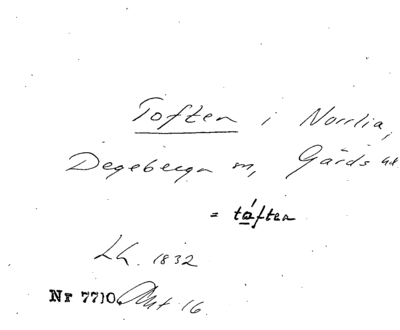 Toften i Norrlia,
Degeberga sn, Gärds hd.
= tåften
Lh. 1832
Nr 7710 Akt 16.